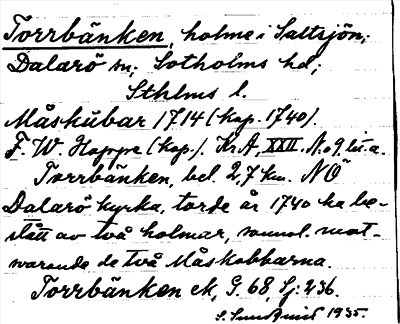 Torrbänken, holme i Saltsjön;
Dalarö sn; Sotholms hd;
Sthlms l.
Måskübar 1714 (kop. 1740).
F. W. Hoppe (kop.). Kr A, XXII. N:o 9, lit. a.
Torrbänken, bel. 2,7 km. NO
Dalarö kyrka, torde år 1740 ha be-
stått av två holmar, sannol. mot-
svarande de två Måskobbarna.
Torrbänken ek, G. 68, Sj: 236.
S. Sundquist 1935.